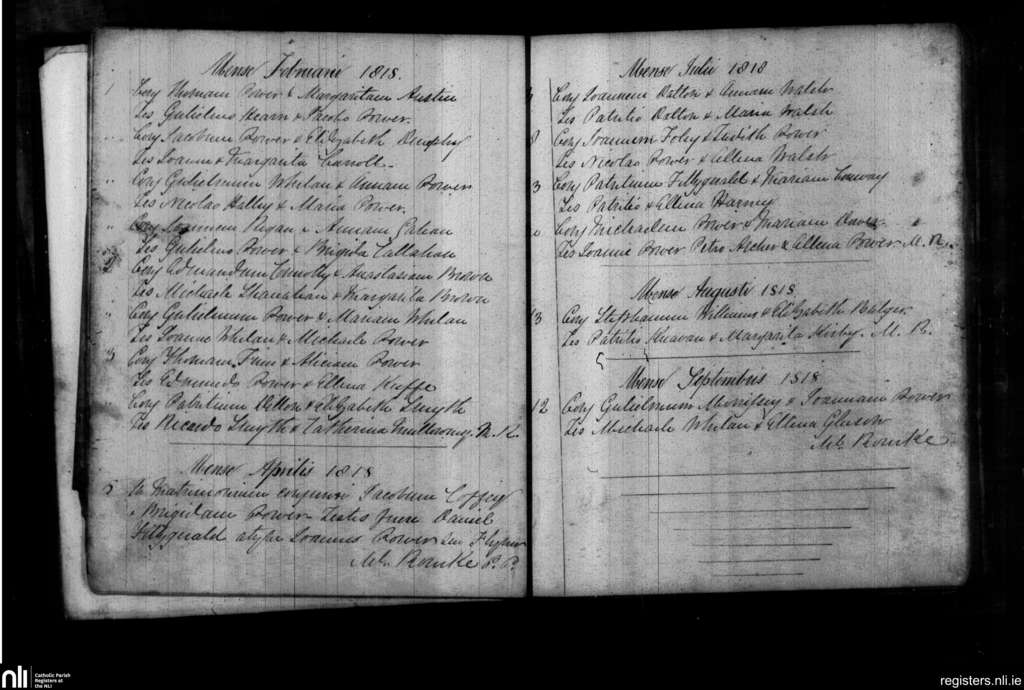 Mense Februarii 1818.
1 Conj Thomam Power & Margaritam Austin
Tes Gulielmo Hearn & Jacobo Power.
Conj Jacobum Power & Elizabeth Dunphy
Tes Joanne & Margarita Carroll
Conj Gulielmum Whelan & Annam Power
Tes Nicolao Halley & Maria Power.
Conj Joannem Regan & Annam
Tes Gulielmo Power & Brigita Callahan
Conj Edmundum Connolly & Anastasiam Brown
Tes Michaele Shanahan & Margarita Brown
Conj Gulielmum Power & Mariam Whelan
Tes Joanne Whelan & Michaele Power
3 Conj Thomam & Aliciam Power
Tes Edmundo Power & Ellena Keeffe
Conj Patritium & Elizabeth Smyth
Tes Ricardo Smyth & Catherina M. R.
Mense Aprilis 1818
5 In Matrimonium conjunxi Jacobum Coffey
& Brigidam Power Testis fuere Daniel
Fitzgerald atque Joannes Power
Ml. Rourke P. P.
Mense Julii 1818
Conj Joannem Dalton & Annam Walsh
Tes Patritio Dalton & Maria Walsh
8 Conj Joannem Foley & Judith Power
Tes Nicolao Power & Ellena Walsh
3 Conj Patritium Fitzgerald & Mariam Conway
Tes Patritio & Ellena Harney
Conj Michaelem Power & Mariam
Tes Joanne Power Petro Archer & Ellena Power M. R.
Mense Augusti 1818
13 Conj Stephanum Williams & Elizabeth Balger
Tes Patritio Kneavan & Margarita Kirby. M. R.
Mense Septembris 1818
12 Conj Gulielmum Morrissey & Joannam Power
Tes Michaele Whelan & Ellena Gleeson
Ml. Rourke
nli
Catholic Parish
Registers at
the NLI
registers.nli.ie